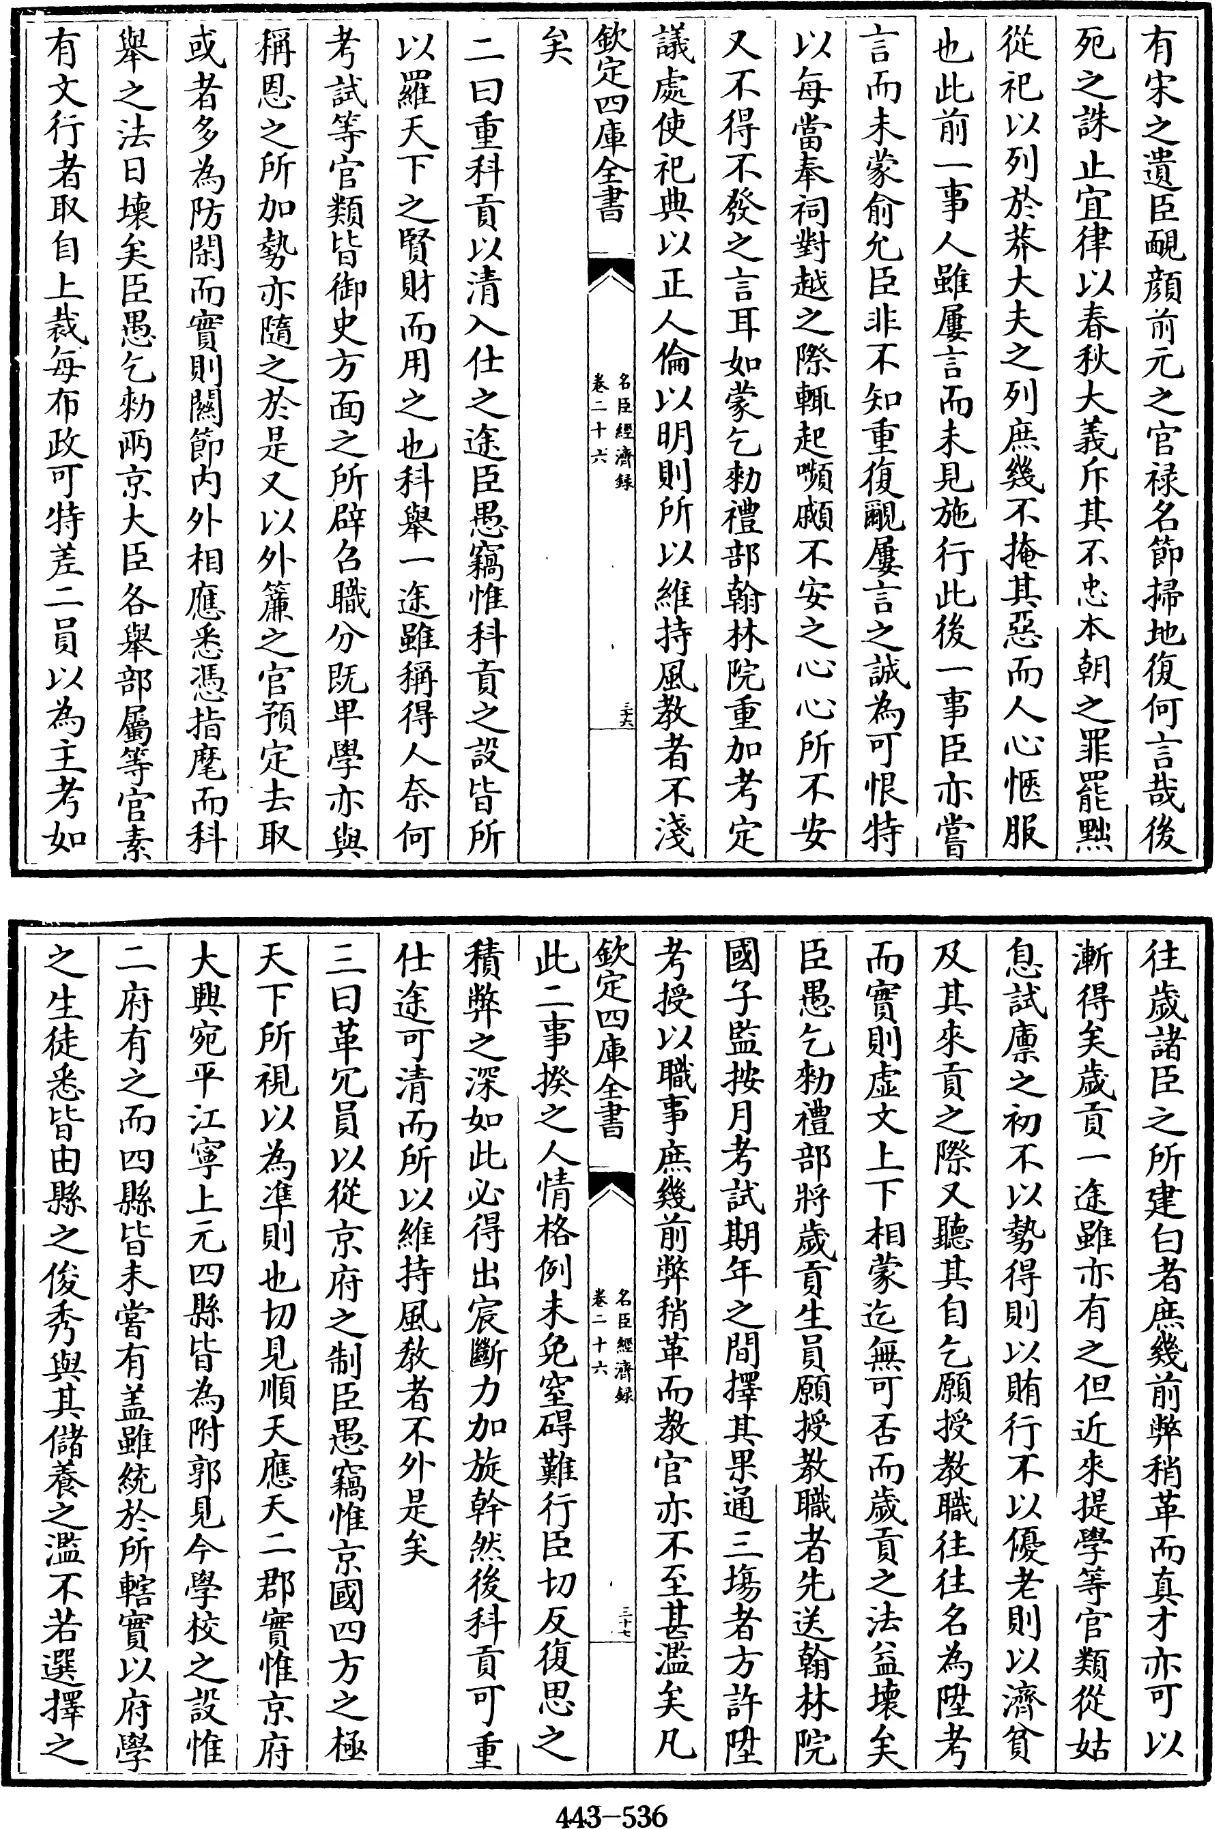 有宋之遺臣靦顔前元之官禄名節掃地復何言哉後
死之誅止宜律以春秋大義斥其不忠本朝之罪罷黜
從祀以列於莽大夫之列庶幾不掩其惡而人心愜服
也此前一事人雖屢言而未見施行此後一事臣亦嘗
言而未蒙俞允臣非不知重復覼屢言之誠為可恨特
以每當奉祠對越之際輙起嚬顣不安之心心所不安
又不得不發之言耳如蒙乞勅禮部翰林院重加考定
議處使祀典以正人倫以明則所以維持風教者不淺
欽定四庫全書
名臣經濟録
卷二十六
三十六
矣
二曰重科貢以清入仕之途臣愚竊惟科貢之設皆所
以羅天下之賢財而用之也科舉一途雖稱得人奈何
考試等官類皆御史方面之所辟召職分既卑學亦與
稱恩之所加勢亦隨之於是又以外簾之官預定去取
或者多為防閑而實則關節内外相應悉憑指麾而科
舉之法日壊矣臣愚乞勅兩京大臣各舉部屬等官素
有文行者取自上裁每布政可特差二員以為主考如
往歲諸臣之所建白者庶幾前弊稍革而真才亦可以
漸得矣歲貢一途雖亦有之但近來提學等官類從姑
息試廩之初不以勢得則以賄行不以優老則以濟貧
及其來貢之際又聽其自乞願授教職往往名為陞考
而實則虚文上下相蒙迄無可否而歲貢之法益壊矣
臣愚乞勅禮部將歲貢生員願授教職者先送翰林院
國子監按月考試期年之間擇其果通三塲者方許陞
考授以職事庶幾前弊稍革而教官亦不至甚濫矣凡
欽定四庫全書
名臣經濟録
卷二十六
三十七
此二事揆之人情格例未免窒碍難行臣切反復思之
積弊之深如此必得出宸斷力加旋幹然後科貢可重
仕途可清而所以維持風教者不外是矣
三曰革冗員以從京府之制臣愚竊惟京國四方之極
天下所視以為凖則也切見順天應天二郡實惟京府
大興宛平江寧上元四縣皆為附郭見今學校之設惟
二府有之而四縣皆未嘗有盖雖統於所轄實以府學
之生徒悉皆由縣之俊秀與其儲養之濫不若選擇之
443-536